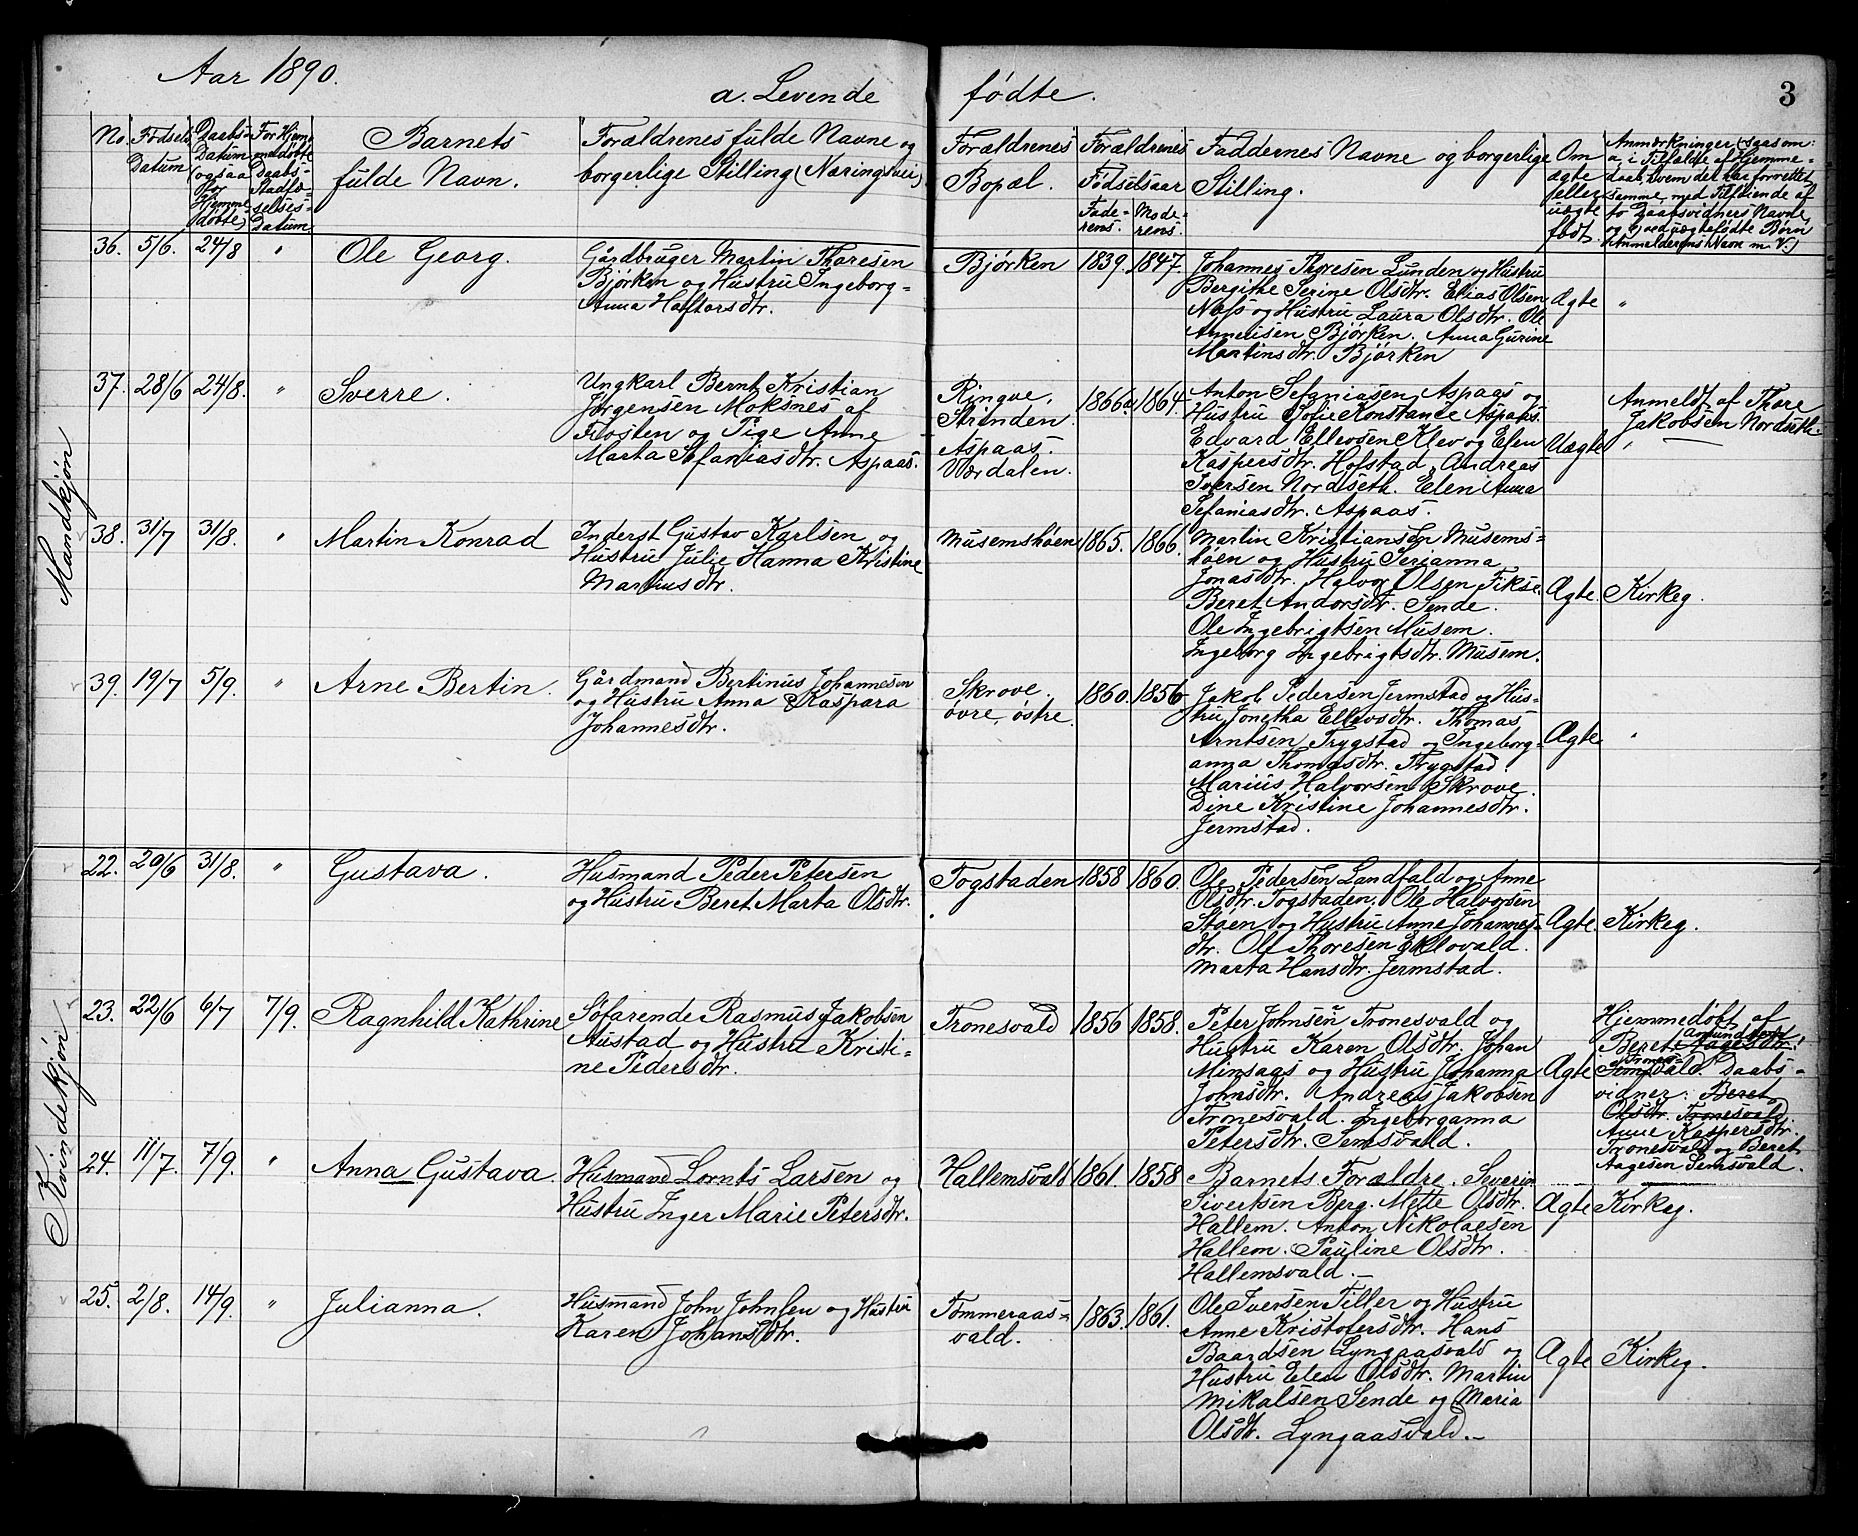 Aar 1890.
a. Levende fødte.
3
No.
Fødsels
Datum
Daabs-
Datum
(ogsaa
for
Hjemme
døbte)
For Hjem
medøbte
Daabs-
Stadfæ-
selses-
Datum
Barnets
fulde Navn.
Forældrenes fulde Navne og
borgerlige Stilling (Næringsvei)
Forældrenes
Bopæl.
Forældrenes
Fødselsaar
Fade-
rens.
Mode-
rens.
Faddernes Navne og borgerlige
Stilling.
Om
ægte
eller
uægte
født.
Anmærkninger (saasom:
a, i Tilfælde af Hjemme-
daab, hvem der har forrettet
samme, med Tilføiende af
to Daabsvidners Navne,
og ved uægtefødte Børn
Anmelderens Navn m. V.)
Mandkjøn
36. 5/6. 24/8 "
Ole Georg.
Gårdbruger Martin Thoresen
Bjørken og Hustru Ingeborg-
Anna Haftorsdtr.
Bjørken
1839. 1847.
Johannes Thoresen Lunden og Hustru
Bergithe Serine Olsdtr. Elias Olsen
Næss og Hustru Laura Olsdtr. Ole
Anneusen Bjørken. Anna Gurine
Martinsdtr. Bjørken
Ægte
"
37. 28/6 24/8. "
Sverre.
Ungkarl Bernt Kristian
Jørgensen Moksnes af
Frosten og Pige Anne
Marta Sefaniasdtr. Aspaas.
Ringve,
Strinden
Aspaas.
Værdalen.
1866 1864.
Anton Sefaniasen Aspaas og
Hustru Sofie Konstanse Aspaas.
Edvard Ellevsen Klev og Elen
Kaspersdtr. Hofstad. Andreas
Iversen Nordseth. Elen Anna
Sefaniasdtr. Aspaas.
Uægte
Anmeldt af Thore
Jakobsen Nordseth.
"
38. 31/7 31/8. "
Martin Konrad
Inderst Gustav Karlsen og
Hustru Julie Hanna Kristine
Martinsdtr.
Musemshøen
1865. 1866.
Martin Kristiansen Musems-
høen og Hustru Serianna
Jonasdtr. Halvor Olsen Fikse.
Beret Andorsdtr. Sende.
Ole Ingebrigtsen Musem.
Ingeborg Ingebrigtsdtr. Musem.
Ægte.
Kirkeg.
39. 19/7 5/9. "
Arne Bertin.
Gårdmand Bertinus Johannesen
og Hustru Anna Kaspara
Johannesdtr.
Skrove.
øvre, østre.
1860. 1856
Jakob Pedersen Jermstad og Hus-
tru Jonetha Ellevsdtr. Thomas
Arntsen Trygstad og Ingeborg-
anna Thomasdtr. Trygstad.
Marius Halvorsen Skrove.
Dine Kristine Johannesdtr.
Jermstad.
Ægte
"
Kvindekjøn
22. 29/6 31/8. "
Gustava.
Husmand Peder Petersen
og Hustru Beret Marta Olsdtr.
Togstaden
1858 1860.
Ole Pedersen Landfald og Anne
Olsdtr. Togstaden. Ole Halvorsen
Støen og Hustru Anne Johannes-
dtr. Ole Thoresen Eklovald.
Marta Hansdtr. Jermstad.
Ægte.
Kirkeg.
23. 22/6 6/7 7/9.
Ragnhild Kathrine
Søfarende Rasmus Jakobsen
Austad og Hustru Kristi-
ne Pedersdtr.
Tronesvald
1856 1858.
Peter Johnsen Tronesvald og
Hustru Karen Olsdtr. Johan
Minsaas og Hustru Johanna
Johnsdtr. Andreas Jakobsen
Tronesvald. Ingeborganna
Petersdtr. Semsvald.
Ægte
Hjemmedøbt af
Amundsdatt
Beret Aagesdtr.
Trones-
Semsvald. Daabs-
vidner: Beret
Olsdtr. Tronesvald.
Anne Kaspersdtr.
Tronesvald og Beret
Aagesen Semsvald.
24. 11/7. 7/9. "
Anna Gustava.
Husmand Lornts Larsen og
Hustru Inger Marie Petersdtr.
Hallemsvald
1861. 1858
Barnets Forældre. Severin
Sivertsen Berg. Mette Olsdtr.
Hallem. Anton Nikolaesen
Hallem. Pauline Olsdtr.
Hallemsvald.
Ægte
Kirkeg.
25. 2/8. 14/9. "
Julianna.
Husmand John Johnsen og Hustru
Karen Johansdtr.
Tømmeraas-
vald.
1863. 1861.
Ole Iversen Tiller og Hustru
Anne Kristofersdtr. Hans
Baardsen Lyngaasvald og
Hustru Elen Olsdtr. Martin
Mikalsen Sende og Maria
Olsdtr. Lyngaasvald.
Ægte
Kirkeg.